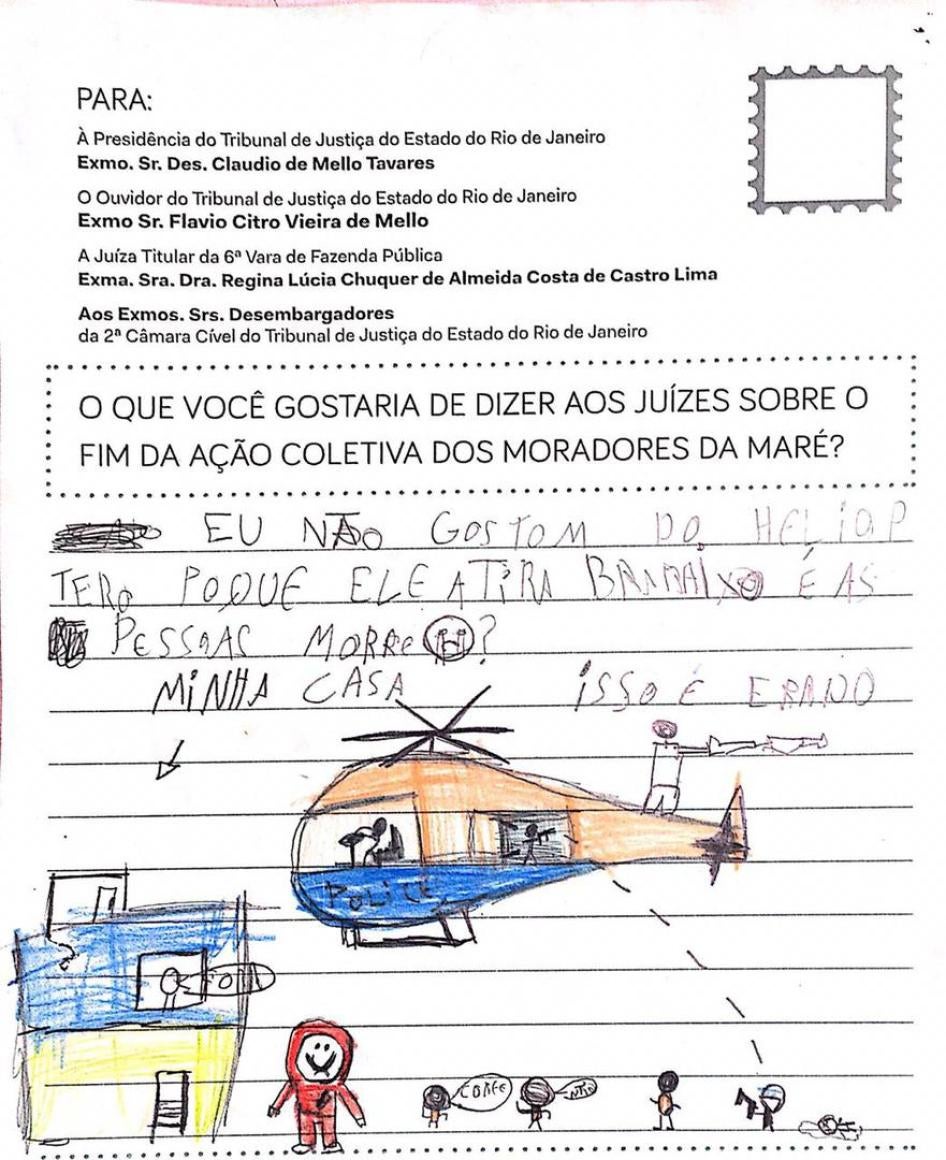 PARA:
À Presidência do Tribunal de Justiça do Estado do Rio de Janeiro
Exmo. Sr. Des. Claudio de Mello Tavares
O Ouvidor do Tribunal de Justiça do Estado do Rio de Janeiro
Exmo Sr. Flavio Citro Vieira de Mello
A Juíza Titular da 6ª Vara de Fazenda Pública
Exma. Sra. Dra. Regina Lúcia Chuquer de Almeida Costa de Castro Lima
Aos Exmos. Srs. Desembargadores
da 2ª Câmara Cível do Tribunal de Justiça do Estado do Rio de Janeiro
O QUE VOCÊ GOSTARIA DE DIZER AOS JUÍZES SOBRE O
FIM DA AÇÃO COLETIVA DOS MORADORES DA MARÉ?
EU NÃO GOSTOM DO HELIOP
TERO POQUE ELE ATIRA É AS
PESSOAS MORRE?
MINHA CASA ISSO É ERADO
POLICE
CORRE